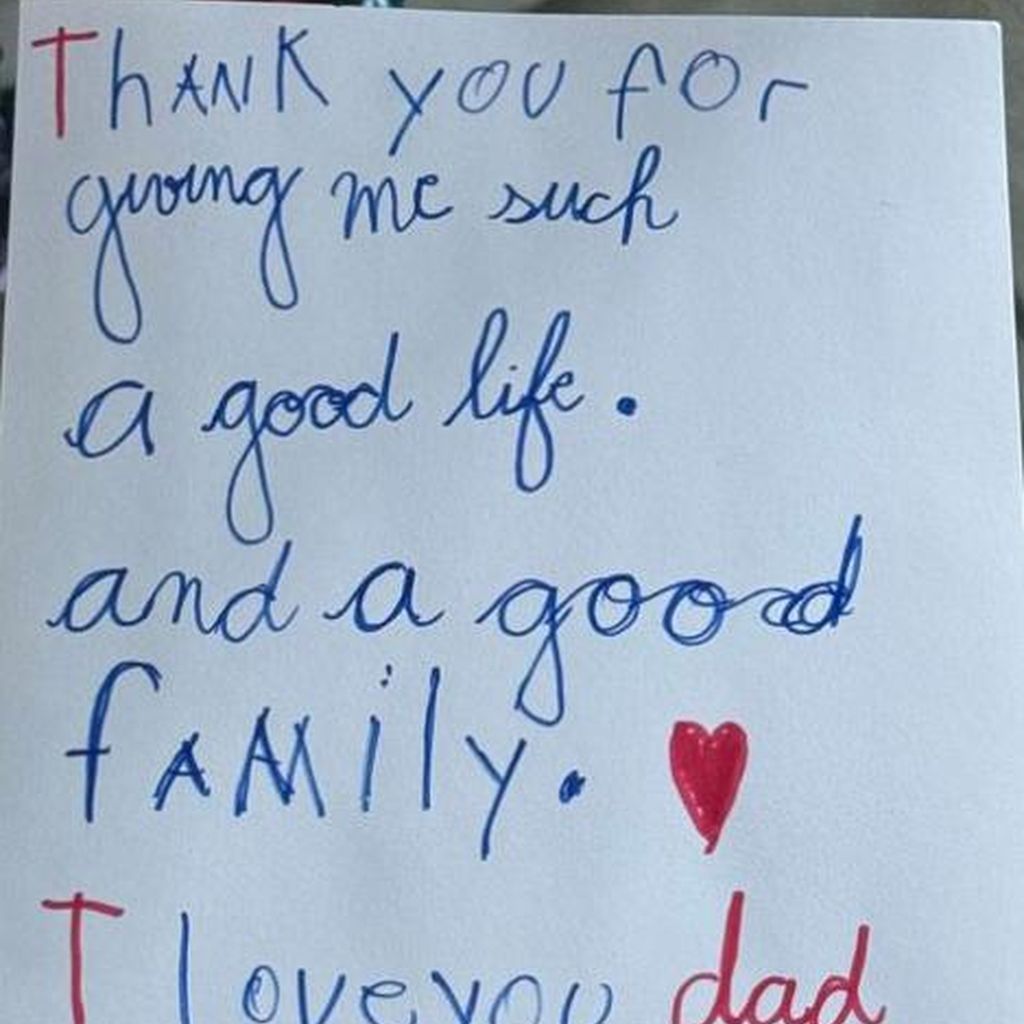 Thank you for
giving me such
a good life.
and a good
family.
I love you dad